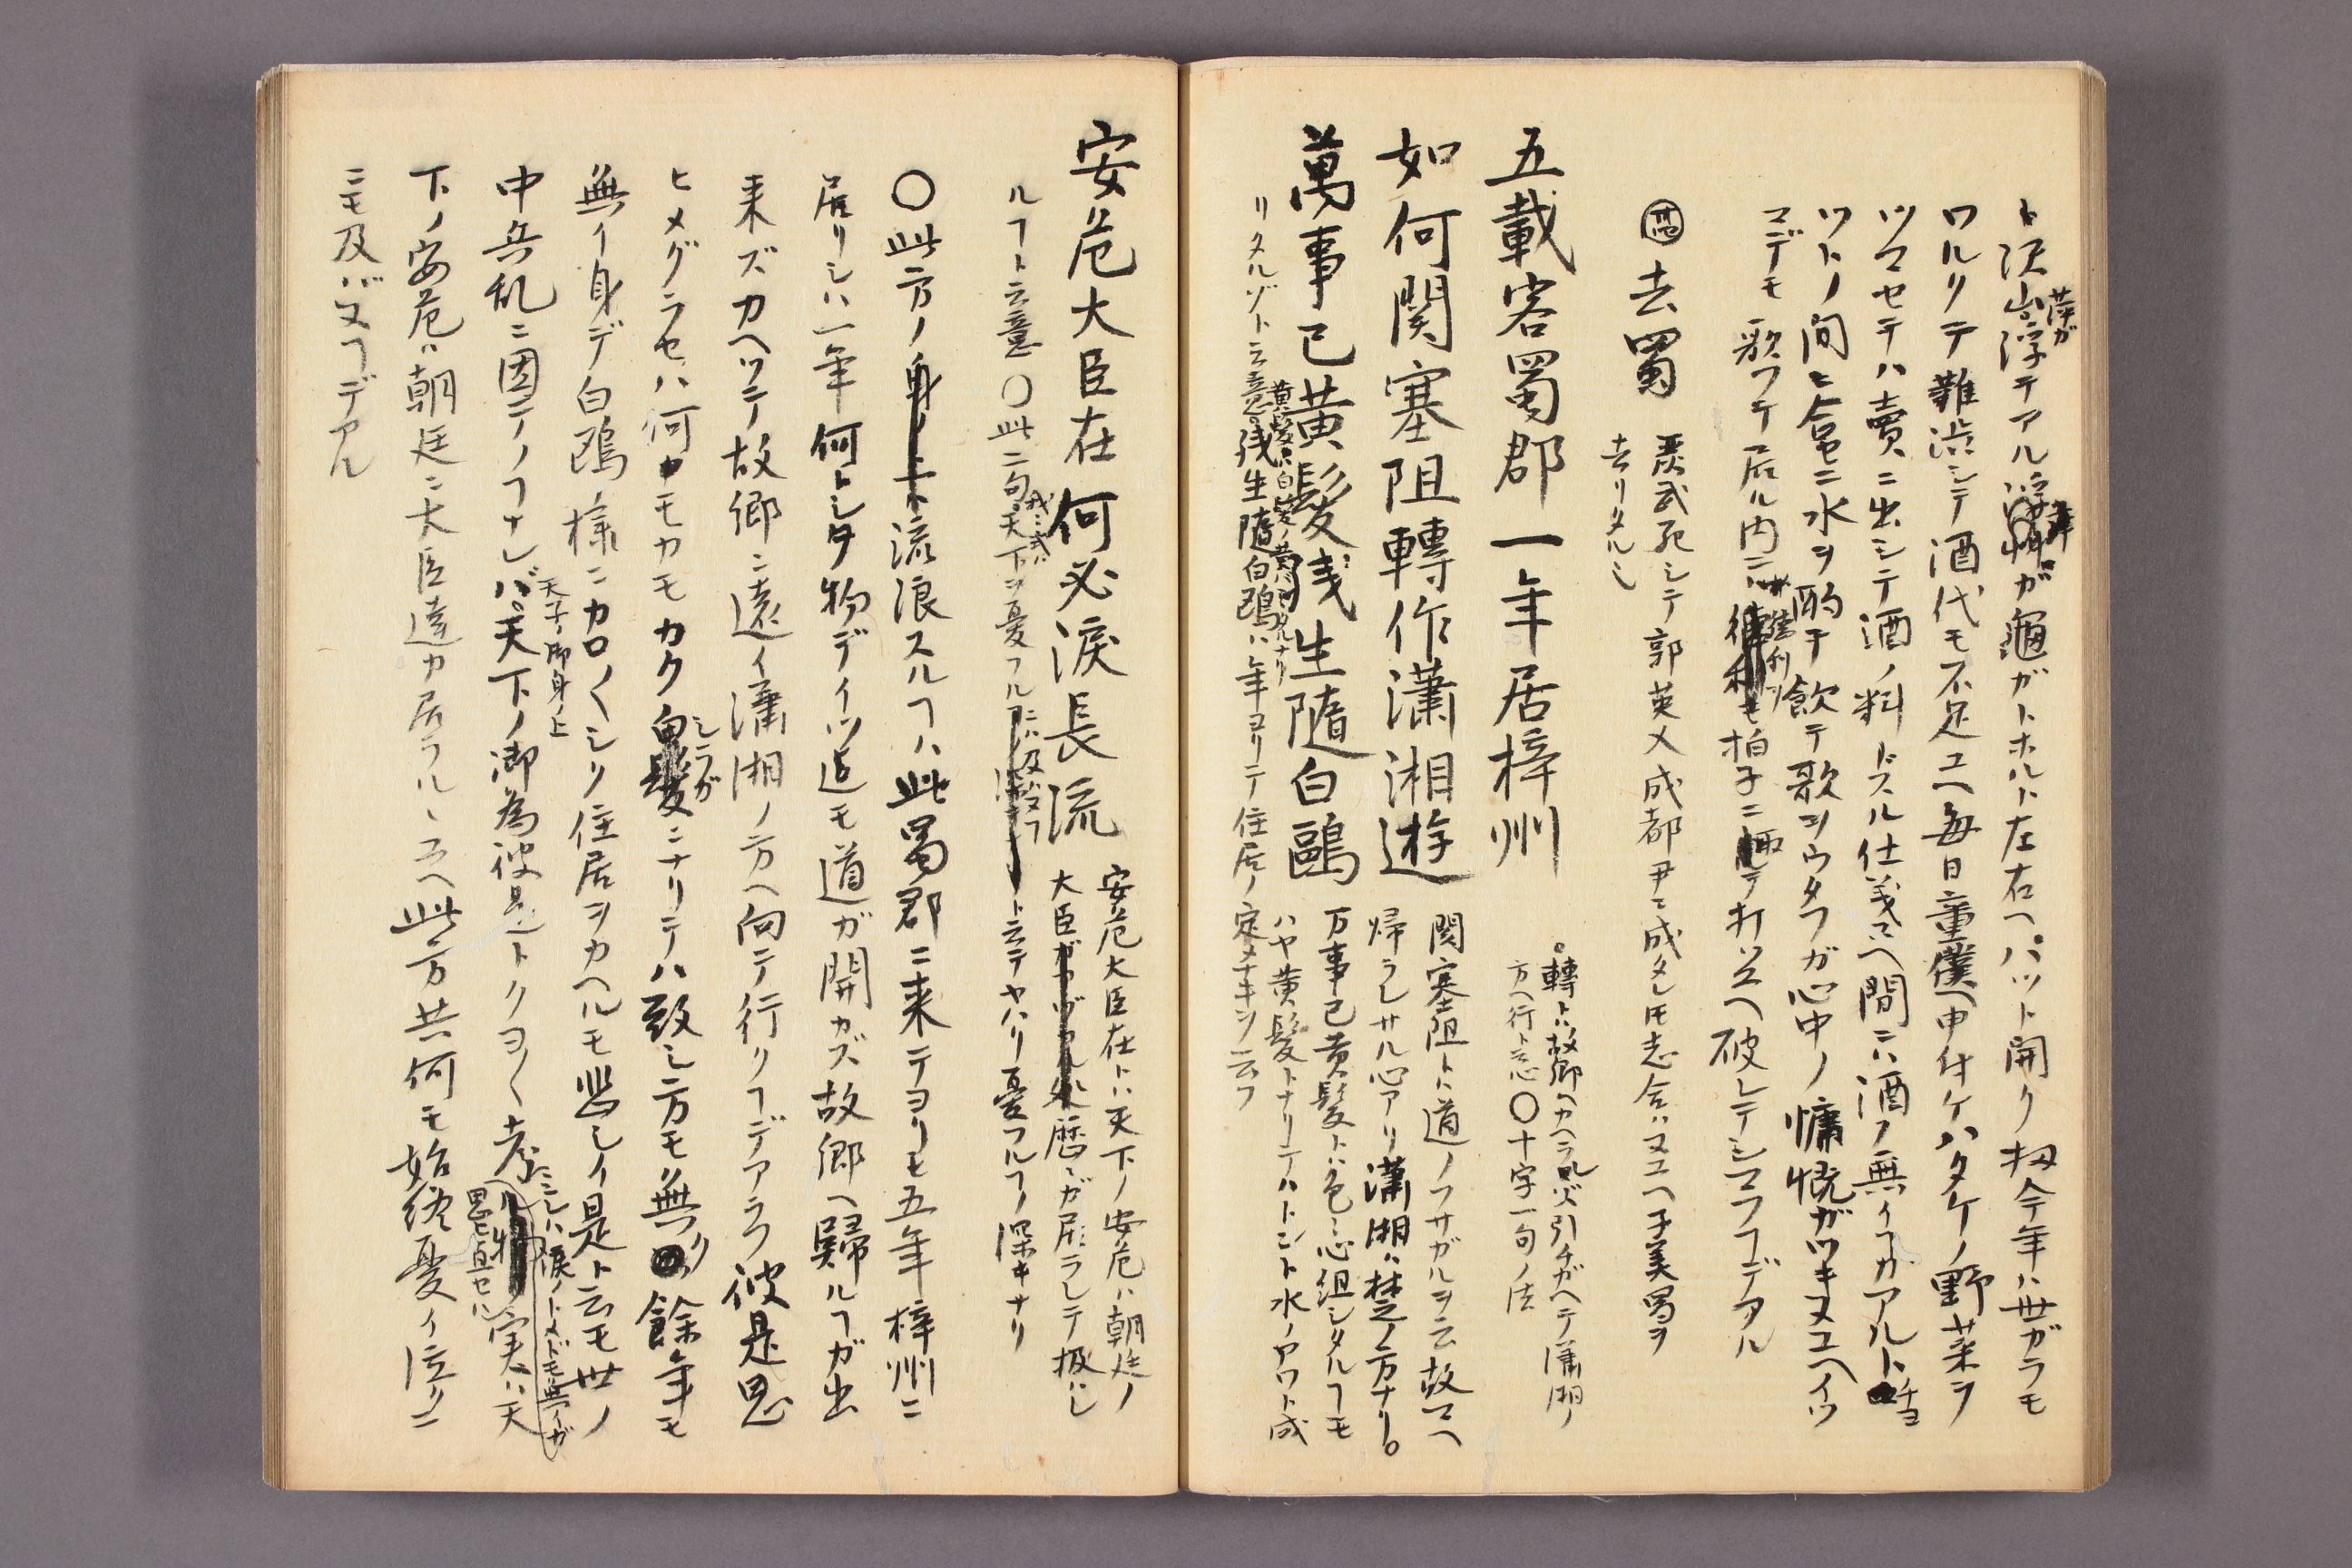 ト沢山浮テアル浮𦾔ガ龜ガトホルト左右ヘパット開ク扨今年ハ世ガラモ
萍ガ
ワルクテ難渋シテ酒代モ不足ユヘ毎日童僕ヘ申付ケハタケノ野菜ヲ
ツマセテハ賣ニ出シテ酒ノ料ドスル仕義ユヘ間ニハ酒ノ無イヿガアルト
チヨ
ツトノ間ヒ合セニ水ヲ酌テ飲テ歌ヲウタフガ心中ノ慷慨ガツキヌユヘイツ
マデモ歌フテ居ル内ニ 拍子ニ 打ツユヘ破レテシマフヿデアル
去蜀
嚴武死シテ郭英乂成都尹ニ成タレ𪜈志合ハヌユヘ子美蜀ヲ
去リタルシ
五載客蜀郡一年居梓州
轉トハ故鄉ヘカヘラレズ引チガヘテ瀟湘ノ
方ヘ行ト云心〇十字一句ノ法
如何関塞阻轉作瀟湘遊
関塞阻トハ道ノフサガルヲ云故ユヘ
帰ラレサル心アリ瀟湘ハ楚ノ方ナリ。
萬事已黄髮残生隨白鷗
万事已黄髮トハ色ミ心組シタルヿモ
ハヤ黄髮トナリテハトント水ノアワト成
リタルゾト云意。残生隨白鷗ハ年ヨリテ住居ノ定メナキヲ云フ
黄髮ハ白髮ノ黄ミタルナリ
安危大臣在何必淚長流
安危大臣在トハ天下ノ安危ハ朝廷ノ
大臣 歴ミガ居ラレテ扱ハレ
ルヿト云意〇此二句天下ヲ憂フル ト云テヤハリ憂フルヿノ深キナリ
ニハ及バヌヿ
〇此方ノ身ノ上ト流浪スルヿハ此蜀郡ニ来テヨリモ五年梓州ニ
居リシハ一年何トシタ物デイツ迠モ道ガ開カズ故鄉ヘ歸ルヿガ出
来ズカヘツテ故鄉ニ遠イ瀟湘ノ方ヘ向テ行クヿデアラウ彼是思
ヒメグラセバ何ヤモカモカク白髮ニナリテハ致シ方モ無ク餘年モ
シラガ
無イ身デ白鷗樣ニカロ〱シク住居ヲカヘルモ悲シイ是ト云モ世ノ
中兵乱ニ因テノヿナレバ天下ノ御為彼是トクヨ〱考ヘル 実ハ天
天子ノ御身ノ上
ニシハ淚ノトメドモ無イガ
思ヒ直セバ
下ノ安危ハ朝廷ニ大臣達カ居ラルヽユヘ此方共何モ始終憂イ泣クニ
ニモ及バヌヿデアル